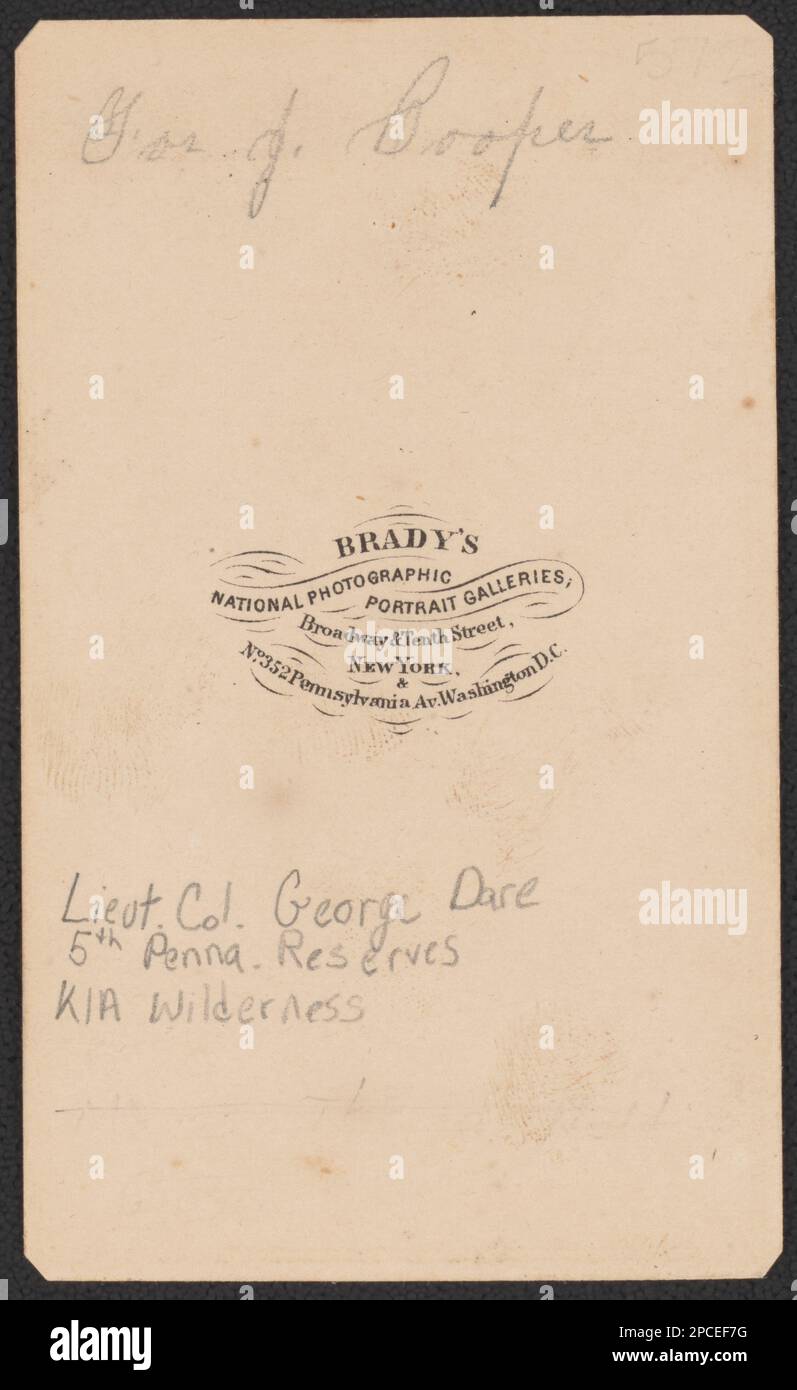 For J. Cooper
BRADY'S
NATIONAL PHOTOGRAPHIC
PORTRAIT GALLERIES,
Broadway & Tenth Street,
NEW YORK,
&
No. 352 Pennsylvania Av. Washington D.C.
Lieut. Col. George Dare
5th Penna. Reserves
KIA Wilderness
alamy
Image ID: 2PCEF7G
www.alamy.com